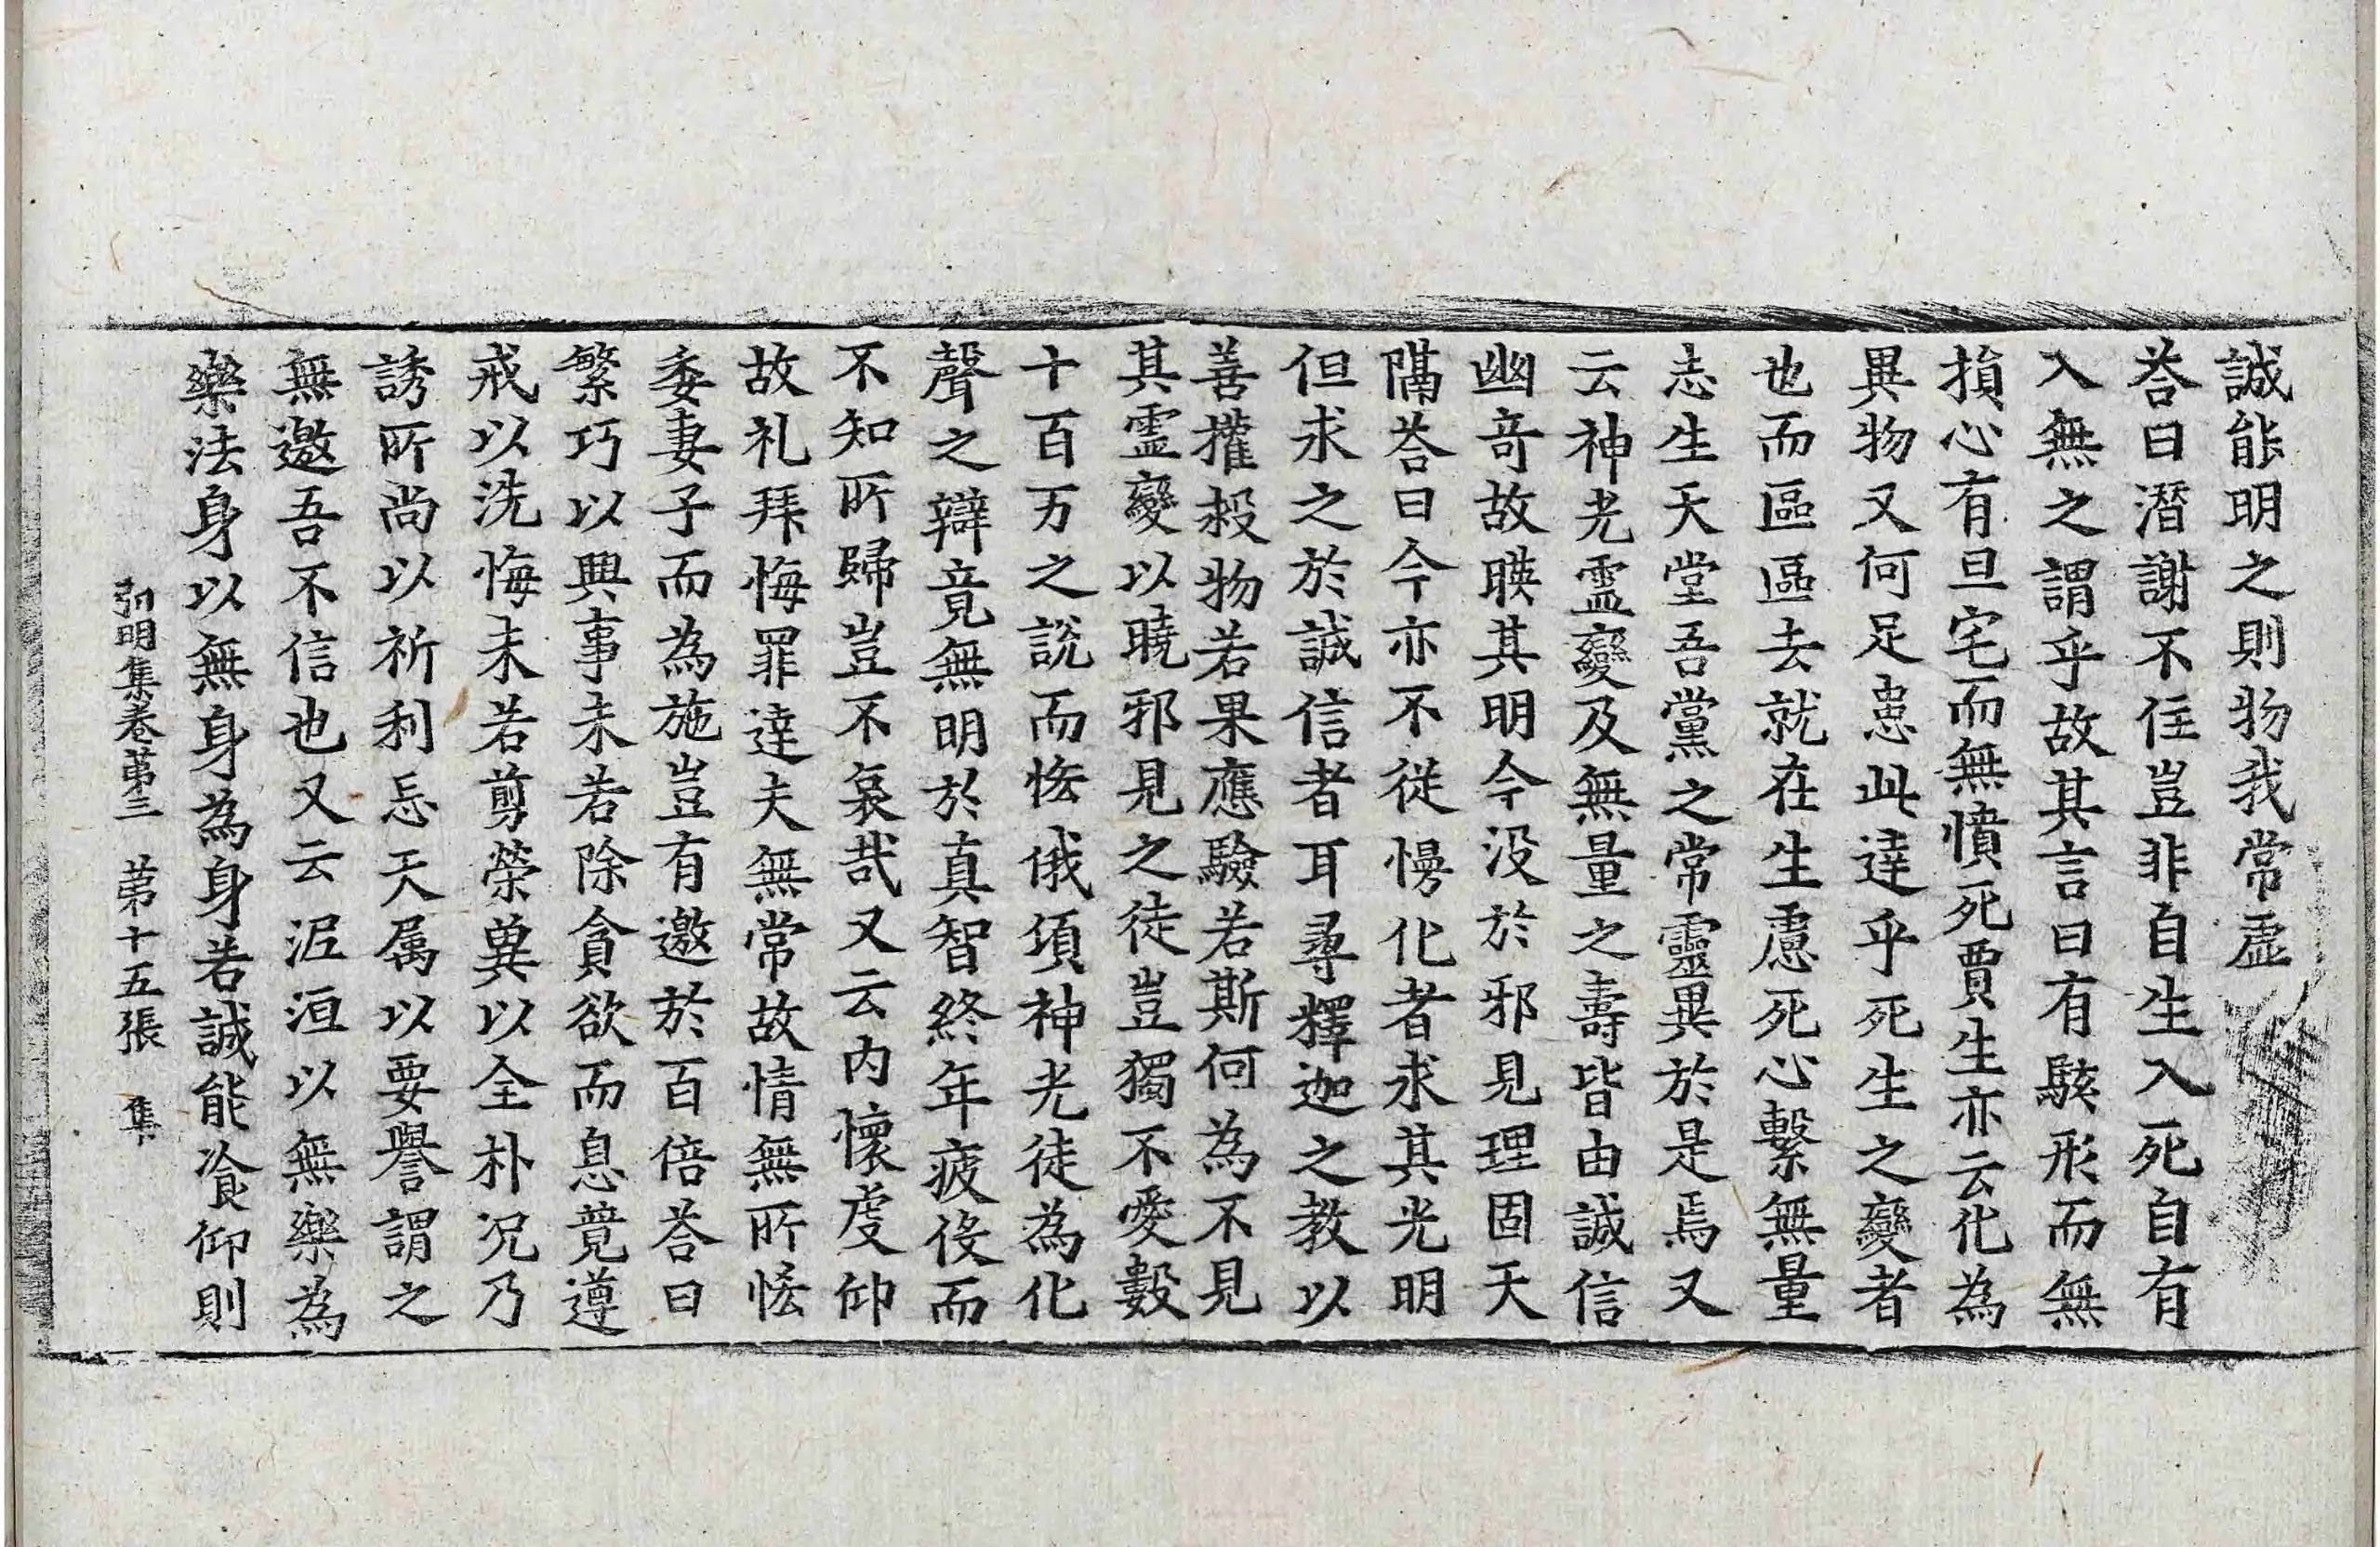 誠能明之則物我常虛
荅曰潛謝不住豈非自生入死自有
入無之謂乎故其言曰有駭形而無
損心有旦宅而無憤死賈生亦云化為
異物又何足患此達乎死生之變者
也而區區去就在生慮死心繫無量
志生天堂吾黨之常靈異於是焉又
云神光靈變及無量之壽皆由誠信
幽竒故暎其明今没於邪見理固天
隔荅曰今亦不從慢化者求其光明
但求之於誠信者耳尋釋迦之教以
善權救物若果應驗若斯何為不見
其靈變以曉邪見之徒豈獨不愛數
十百万之說而恡俄頃神光徒為化
聲之辯竟無明於真智終年疲役而
不知所歸豈不哀哉又云內懷虔仰
故礼拜悔罪達夫無常故情無所恡
委妻子而為施豈有邀於百倍荅曰
繁巧以興事未若除貪欲而息竟遵
戒以洗悔未若剪榮兾以全朴况乃
誘所尚以祈利忘天属以要譽謂之
無邀吾不信也又云泥洹以無樂為
樂法身以無身為身若誠能飡仰則
弘明集卷苐三　苐十五張　集